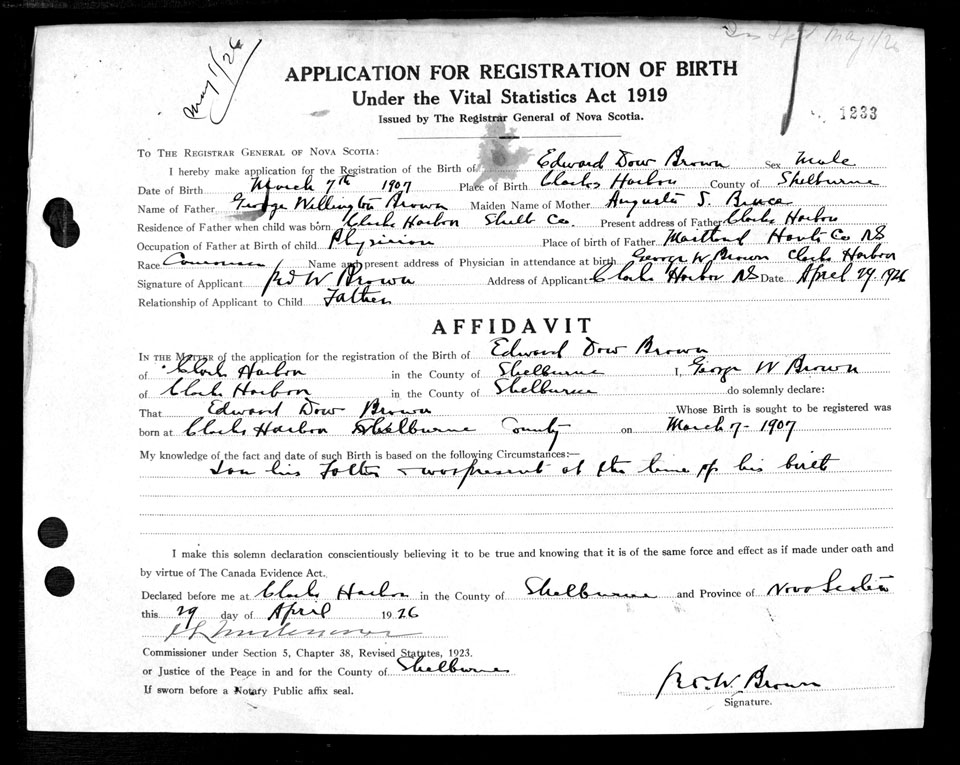 May 1/26
May 1/26
APPLICATION FOR REGISTRATION OF BIRTH
Under the Vital Statistics Act 1919
Issued by The Registrar General of Nova Scotia.
1233
TO THE REGISTRAR GENERAL OF NOVA SCOTIA:
I hereby make application for the Registration of the Birth of Edward Dow Brown Sex Male
Date of Birth March 7th 1907 Place of Birth Clarks Harbor County of Shelburne
Name of Father George Willington Brown Maiden Name of Mother Augusta S. Bruce
Residence of Father when child was born Clarks Harbor Shelb Co. Present address of Father Clarks Harbor
Occupation of Father at Birth of child Physician Place of birth of Father Maitland Hants Co NS
Race Name and present address of Physician in attendance at birth George W Brown Clarks Harbor
Signature of Applicant W Brown Address of Applicant Clarks Harbor NS Date April 29 1926
Relationship of Applicant to Child Father
AFFIDAVIT
IN THE MATTER of the application for the registration of the Birth of Edward Dow Brown
of Clarks Harbor in the County of Shelburne I, George W Brown
of Clarks Harbor in the County of Shelburne do solemnly declare:
That Edward Dow Brown Whose Birth is sought to be registered was
born at Clarks Harbor Shelburne County on March 7- 1907
My knowledge of the fact and date of such Birth is based on the following Circumstances:—
I am his Father & was present at the time of his birth
I make this solemn declaration conscientiously believing it to be true and knowing that it is of the same force and effect as if made under oath and
by virtue of The Canada Evidence Act.
Declared before me at Clarks Harbor in the County of Shelburne and Province of Nova Scotia
this 29 day of April 1926
Commissioner under Section 5, Chapter 38, Revised Statutes, 1923.
or Justice of the Peace in and for the County of Shelburne
If sworn before a Notary Public affix seal.
W. Brown
Signature.